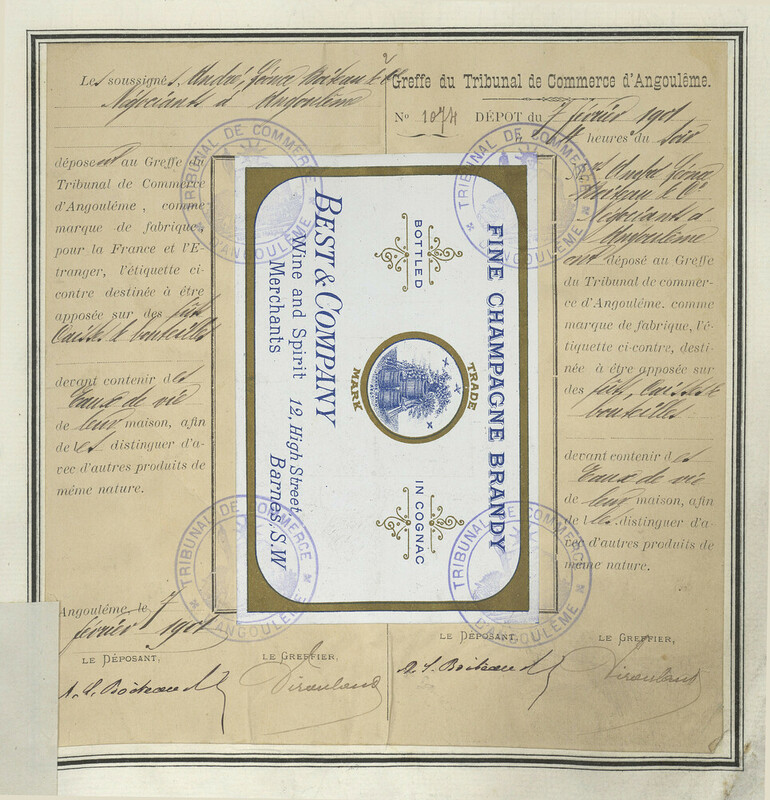 Les soussignés, André, Léonce Boiteau & Cie
Négociants à Angoulême
déposent au Greffe du
Tribunal de Commerce
d'Angoulême, comme
marque de fabrique,
pour la France et l'É-
tranger, l'étiquette ci-
contre destinée à être
apposée sur des fûts
Caisses & bouteilles
devant contenir des
Eaux de vie
de leur maison, afin
de les distinguer d'a-
vec d'autres produits de
même nature.
Angoulême, le 7
février 1901
LE DÉPOSANT,
A. L. Boiteau
LE GREFFIER,
Greffe du Tribunal de Commerce d'Angoulême.
No 1074 DÉPOT du 7 février 1901
heures du soir
André Léonce
Boiteau & Cie
Négociants à
Angoulême
ont déposé au Greffe
du Tribunal de commer-
ce d'Angoulême. comme
marque de fabrique, l'é-
tiquette ci-contre, desti-
née à être apposée sur
des fûts, Caisses &
bouteilles
devant contenir des
Eaux de vie
de leur maison, afin
de les distinguer d'a-
vec d'autres produits de
même nature.
LE DÉPOSANT,
A. L. Boiteau
LE GREFFIER,
FINE CHAMPAGNE BRANDY
BOTTLED
IN COGNAC
TRADE
MARK
BEST & COMPANY
Wine and Spirit
Merchants
12, High Street
Barnes, S.W
TRIBUNAL DE COMMERCE
D'ANGOULÊME
TRIBUNAL DE COMMERCE
D'ANGOULÊME
TRIBUNAL DE COMMERCE
D'ANGOULÊME
TRIBUNAL DE COMMERCE
D'ANGOULÊME